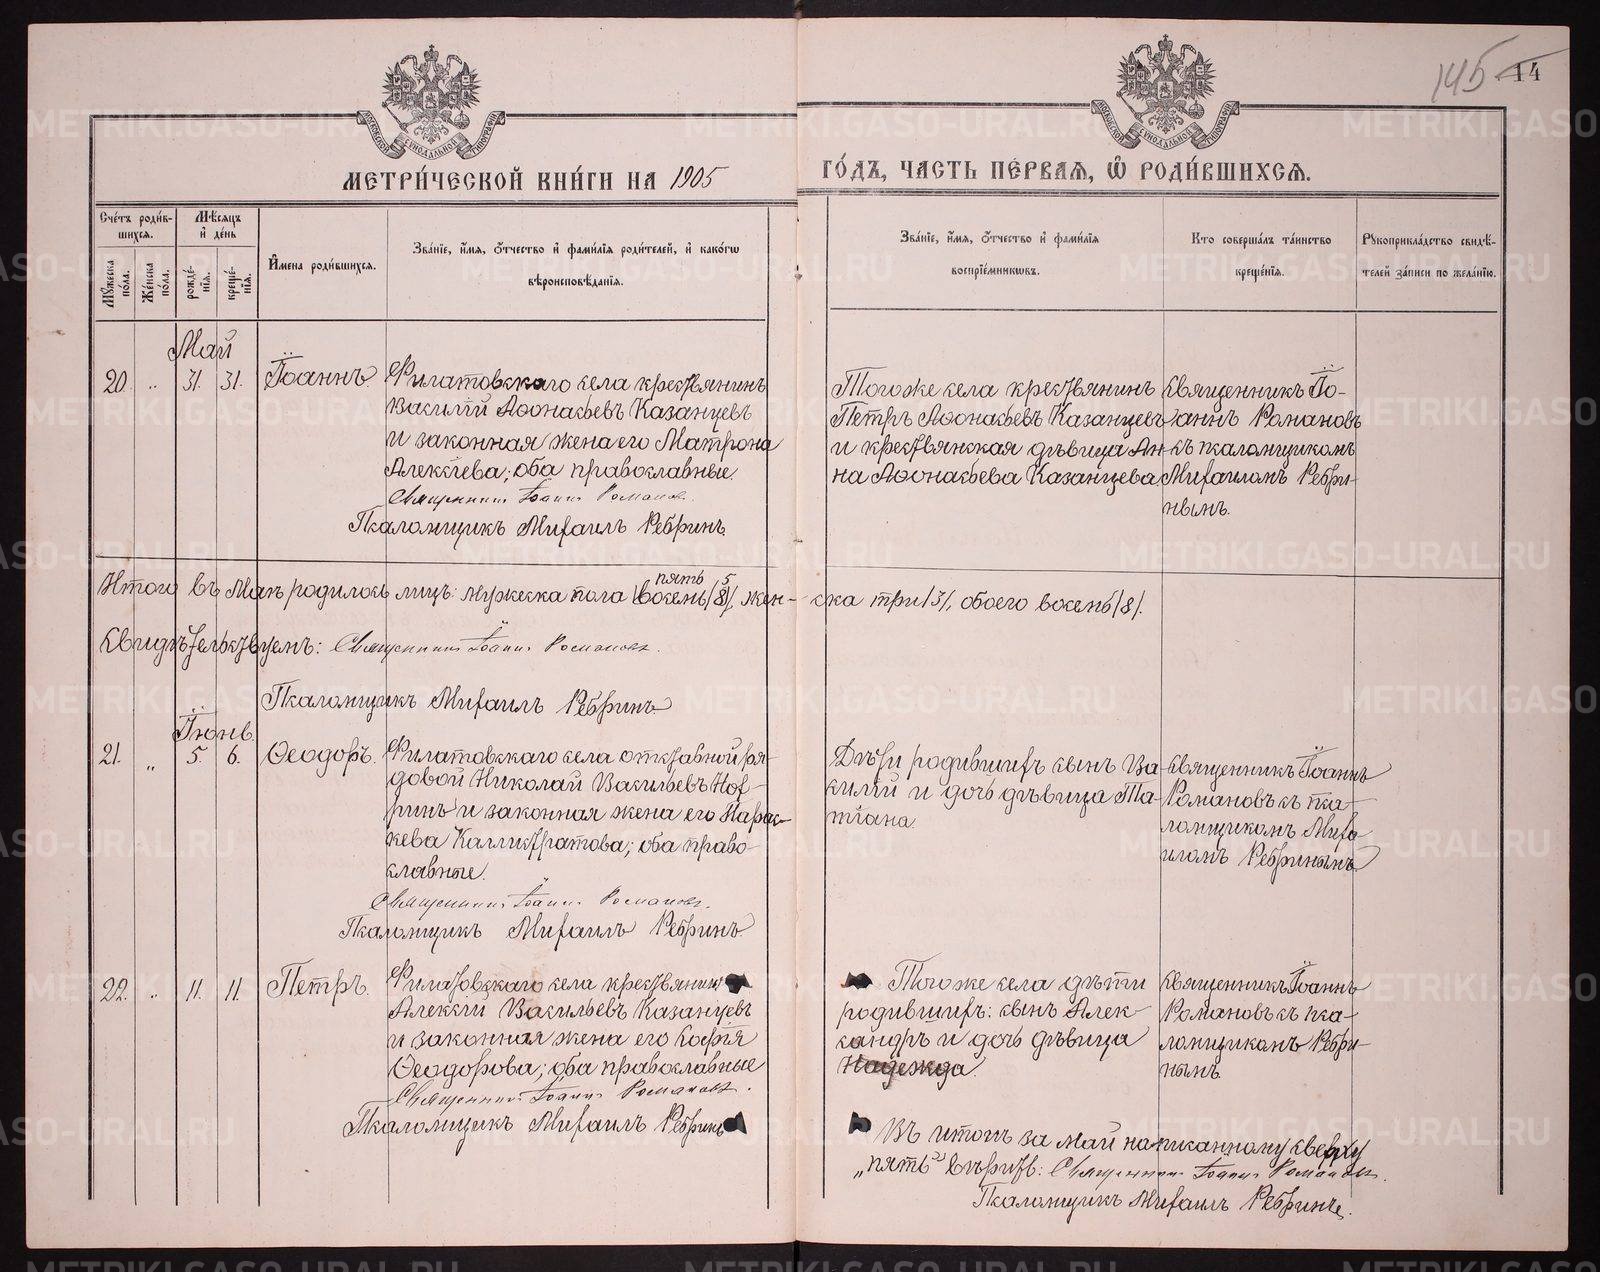 145 14
МОСКОВСКОЙ СѴНОДАЛЬНОЙ ТИПОГРАФІИ
МОСКОВСКОЙ СѴНОДАЛЬНОЙ ТИПОГРАФІИ
МЕТРИ́ЧЕСКОЙ КНИ́ГИ НА 1905 ГО́ДЪ, ЧАСТЬ ПЕ́РВАѦ, Ѽ РОДИ́ВШИХСѦ.
Сче́тъ роди́в-
шихся.
Мѣ́сяцъ
и҆ де́нь
Мꙋ́жеска по́ла.
Же́нска по́ла.
рожде́-
нїя.
креще́-
нїя.
И҆мена роди́вшихся.
Зва́нїе, и҆́мя, ѻ҆́тчество и҆ фами́лїя роди́телей, и҆ како́гѡ
вѣроисповѣ́данїя.
Зва́нїе, и҆́мя, ѻ҆́тчество и҆ фами́лїя
воспрїе́мникѡвъ.
Кто соверша́лъ та́инство
креще́нїя.
Рꙋкоприкла́дство свидѣ́-
телей за́писи по жела́нїю.
Май
20. „ 31. 31. Іоаннъ
Филатовскаго села крестьянинъ
Василій Аѳонасьевъ Казанцевъ
и законная жена его Матрона
Алексіева; оба православные.
Священникъ Іоаннъ Романовъ.
Псаломщикъ Михаилъ Ребринъ.
Того же села крестьянинъ
Петръ Аѳонасьевъ Казанцевъ
и крестьянская дѣвица Ан-
на Аѳонасьева Казанцева
Священникъ Іо-
аннъ Романовъ
съ псаломщикомъ
Михаиломъ Ребри-
нымъ.
пять 5
Итого въ Маѣ родилось лицъ: мужеска пола восемь /8/, жен-ска три /3/, обоего восемь /8/.
Свидѣтельствуемъ: Священникъ Іоаннъ Романовъ.
Псаломщикъ Михаилъ Ребринъ
Іюнь.
21. „ 5. 6. Ѳеодоръ.
Филатовскаго села отставной ря-
довой Николай Васильевъ Нох-
ринъ и законная жена его Парас-
кева Каллистратова; оба право-
славные.
Священникъ Іоаннъ Романовъ.
Псаломщикъ Михаилъ Ребринъ
Дѣти родившихъ сынъ Ва-
силій и дочь дѣвица Та-
тіана.
Священникъ Іоаннъ
Романовъ съ пса-
ломщикомъ Миха-
иломъ Ребринымъ
22. „ 11. 11. Петръ.
Филатовскаго села крестьянинъ
Алексій Васильевъ Казанцевъ
и законная жена его Софія
Ѳеодорова; оба православные
Священникъ Іоаннъ Романовъ.
Псаломщикъ Михаилъ Ребринъ
Того же села дѣти
родившихъ: сынъ Алек-
сандръ и дочь дѣвица
Надежда.
Священникъ Іоаннъ
Романовъ съ пса-
ломщикомъ Ребри-
нымъ.
Въ итогѣ за май написанному сверху
„пять“ вѣрить: Священникъ Іоаннъ Романовъ.
Псаломщикъ Михаилъ Ребринъ.
METRIKI.GASO-URAL.RU